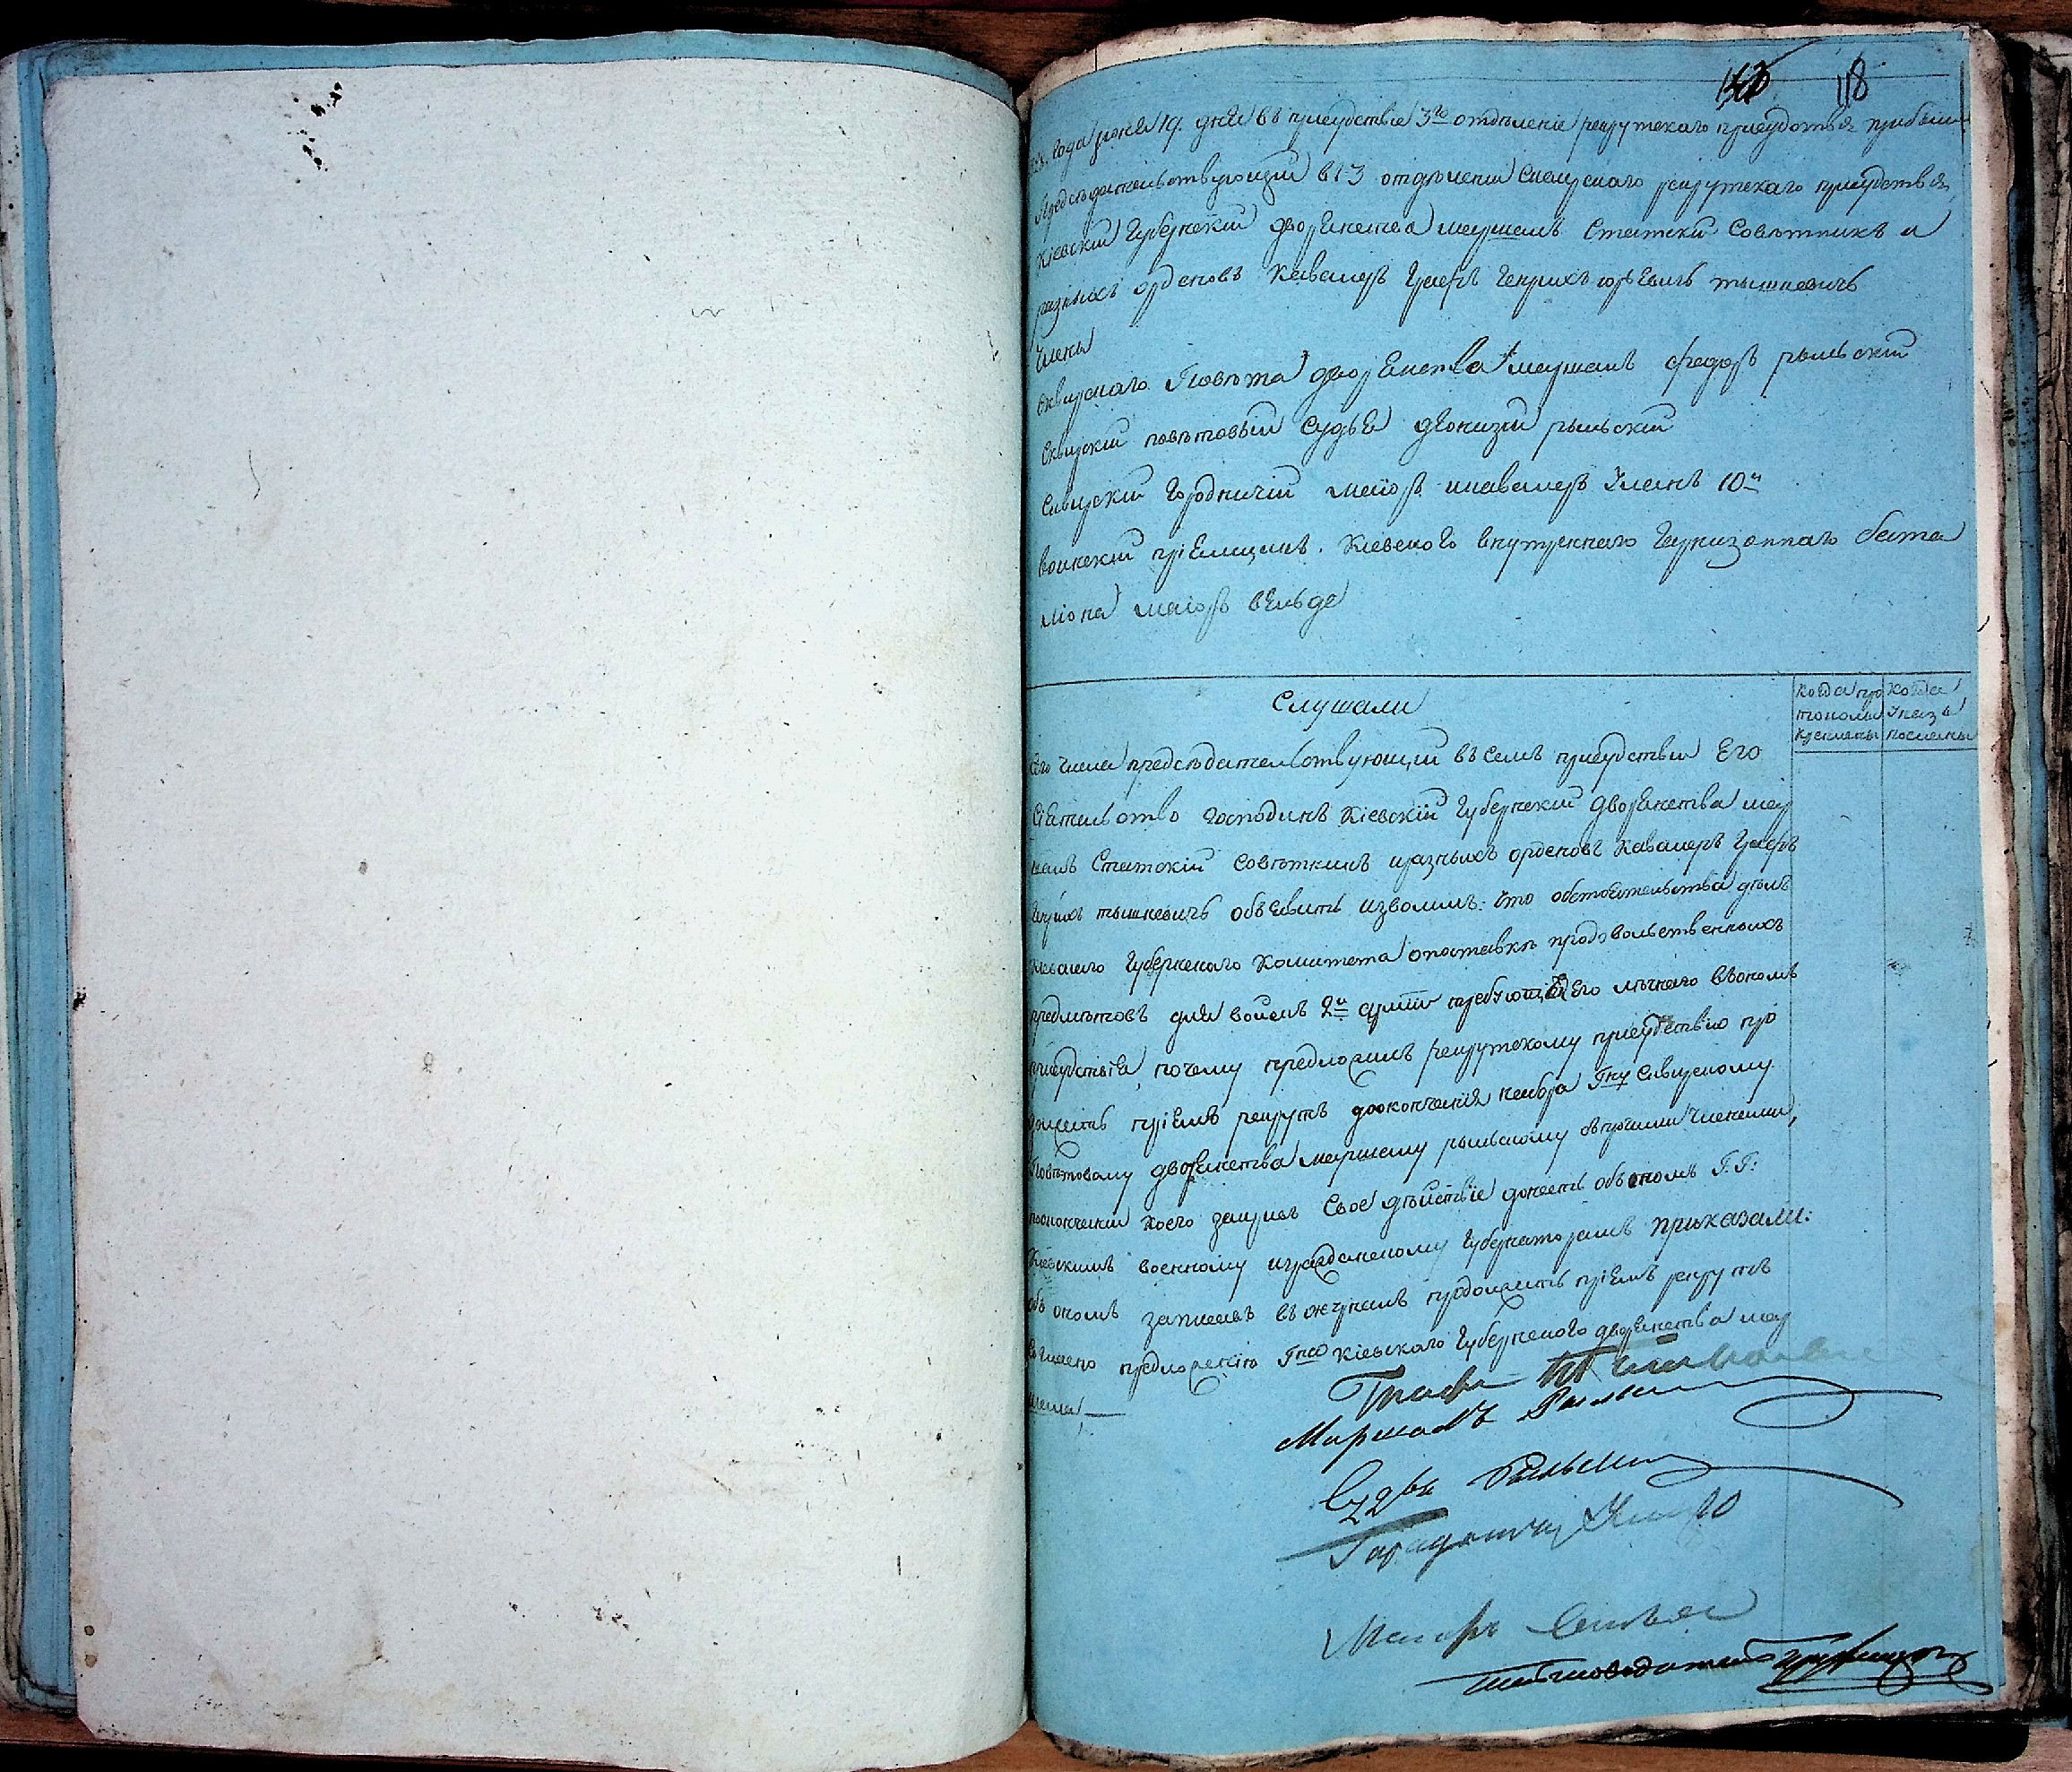 118
года июня 19. дня въ присудствие 3го отдѣление рекрутскаго присудствия прибыли
Предсѣдательствующий в 3 отдѣлении Сквирскаго рекрутскаго присудствия
Кіевский Губернский дворянства маршалъ Статский Совѣтникъ и
разныхъ орденовъ Кавалеръ Графъ Генрихъ Юрьевичъ Тышкевичъ
Члены
Сквирскаго Повѣта дворянства маршалъ Федоръ Рыльский
Сквирский повѣтовый Судья Дионизий Рыльский
Сквирский Городничий маіоръ и кавалеръ
воинский приемщикъ. Кіевского внутренняго Гарнизоннаго бата
ліона маіоръ
Слушали
Когда про Когда
токолы Указы
посланы
Сего числа предсѣдательствующий въ семъ присудствии Его
Сіятельство Господинъ Кіевский Губернский дворянства мар
шалъ Статский совѣтникъ и разныхъ орденовъ Кавалеръ Графъ
Генрихъ Тышкевичъ объявить изволилъ: что обстоятельства дѣлъ
Кіевского Губернскаго Комитета о поставкѣ продовольственныхъ
предмѣтовъ для войскъ 2й арміи требуютъ Его личного въ ономъ
присудствія, почему предложилъ рекрутскому присудствію про
должать пріемъ рекрутъ до окончания набора Гну Сквирскому
Повѣтовому дворянства маршалу Рыльскому съ прочими членами,
по окончании коего закрывъ Свое дѣйствіе донесть объ ономъ Г.Г:
Кіевскимъ военному и гражданскому Губернаторамъ Приказали:
объ ономъ записавъ въ журналъ продолжать пріемъ рекрутъ
согласно предложенію Гна Кіевскаго Губернскаго дворянства мар
шала,—
Графъ Тышкевичъ
Маршалъ Рыльский
Судья Рыльский
Городничий
Маіоръ